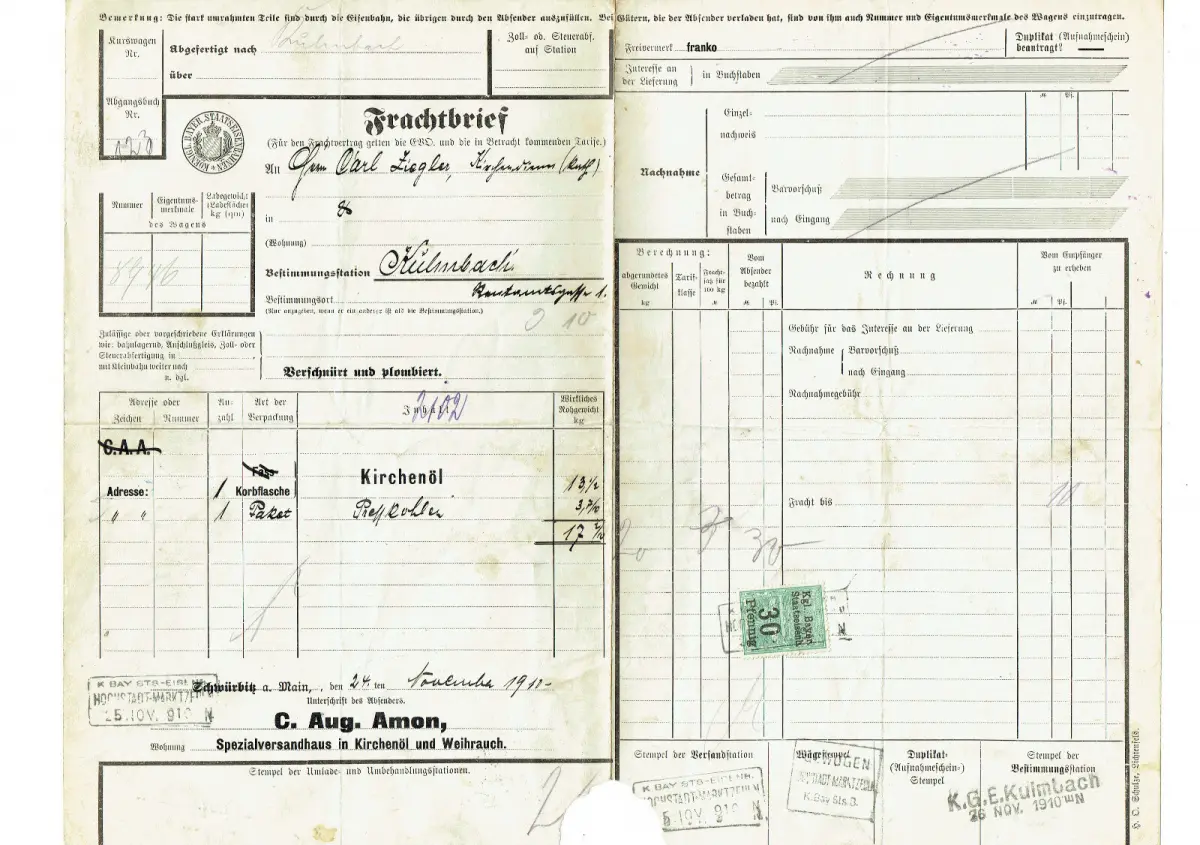 Bemerkung: Die stark umrahmten Teile sind durch die Eisenbahn, die übrigen durch den Absender auszufüllen. Bei Gütern, die der Absender verladen hat, sind von ihm auch Nummer und Eigentumsmerkmale des Wagens einzutragen.
Kurswagen
Nr.
Abgefertigt nach Kulmbach
über
Zoll- od. Steuerabf.
auf Station
Abgangsbuch
Nr.
123
KOENIGL. BAYER. STAATSEISENBAHNEN
Frachtbrief
(Für den Frachtvertrag gelten die EVO. und die in Betracht kommenden Tarife.)
An Herrn Carl Ziegler, Kirchendiener (kath)
in
(Wohnung)
Bestimmungsstation Kulmbach.
Rentamtsgasse 1.
Bestimmungsort
(Nur anzugeben, wenn er ein anderer ist als die Bestimmungsstation.)
Nummer
Eigentums-
merkmale
Ladegewicht
(Ladefläche)
kg (qm)
des Wagens
8946
Zulässige oder vorgeschriebene Erklärungen
wie: bahnlagernd, Anschlußgleis, Zoll- oder
Steuerabfertigung in
mit Kleinbahn weiter nach
u. dgl.
Verschnürt und plombiert.
Adresse oder
Zeichen Nummer
An-
zahl
Art der
Verpackung
Inhalt
2102
Wirkliches
Rohgewicht
kg
C.A.A.
Fass
Adresse: 1 Korbflasche Kirchenöl 13 1/2
" " 1 Paket Presskohlen 3,7/10
17 2/10
Schwürbitz a. Main, den 24 ten November 1910
Unterschrift des Absenders.
C. Aug. Amon,
Wohnung Spezialversandhaus in Kirchenöl und Weihrauch.
K BAY STS-EISENB.
HOCHSTADT-MARKTZEULN
25. NOV. 910 N
Stempel der Umlade- und Umbehandlungsstationen.
Freivermerk franko
Duplikat (Aufnahmeschein)
beantragt?
Interesse an
der Lieferung
in Buchstaben
Nachnahme
Einzel-
nachweis
Gesamt-
betrag
in Buch-
staben
Barvorschuß
nach Eingang
M Pf.
Berechnung:
abgerundetes
Gewicht
kg
Tarif-
klasse
Fracht-
satz für
100 kg
M
Vom
Absender
bezahlt
M Pf.
Rechnung
Vom Empfänger
zu erheben
M Pf.
Gebühr für das Interesse an der Lieferung
Nachnahme Barvorschuß
nach Eingang
Nachnahmegebühr
Fracht bis
10
20
30
Kgl. Bayer.
Staatseisenb.
30
Pfennig.
Stempel der Versandstation
K BAY STS-EISENB.
HOCHSTADT-MARKTZEULN
25. NOV. 910 N
Wägestempel
GEWOGEN
HOCHSTADT-MARKTZEULN
K. Bay Sts. B.
Duplikat-
(Aufnahmeschein-)
Stempel
Stempel der
Bestimmungsstation
K.G.E. Kulmbach
26 NOV. 1910 N
H. O. Schulze, Lichtenfels.